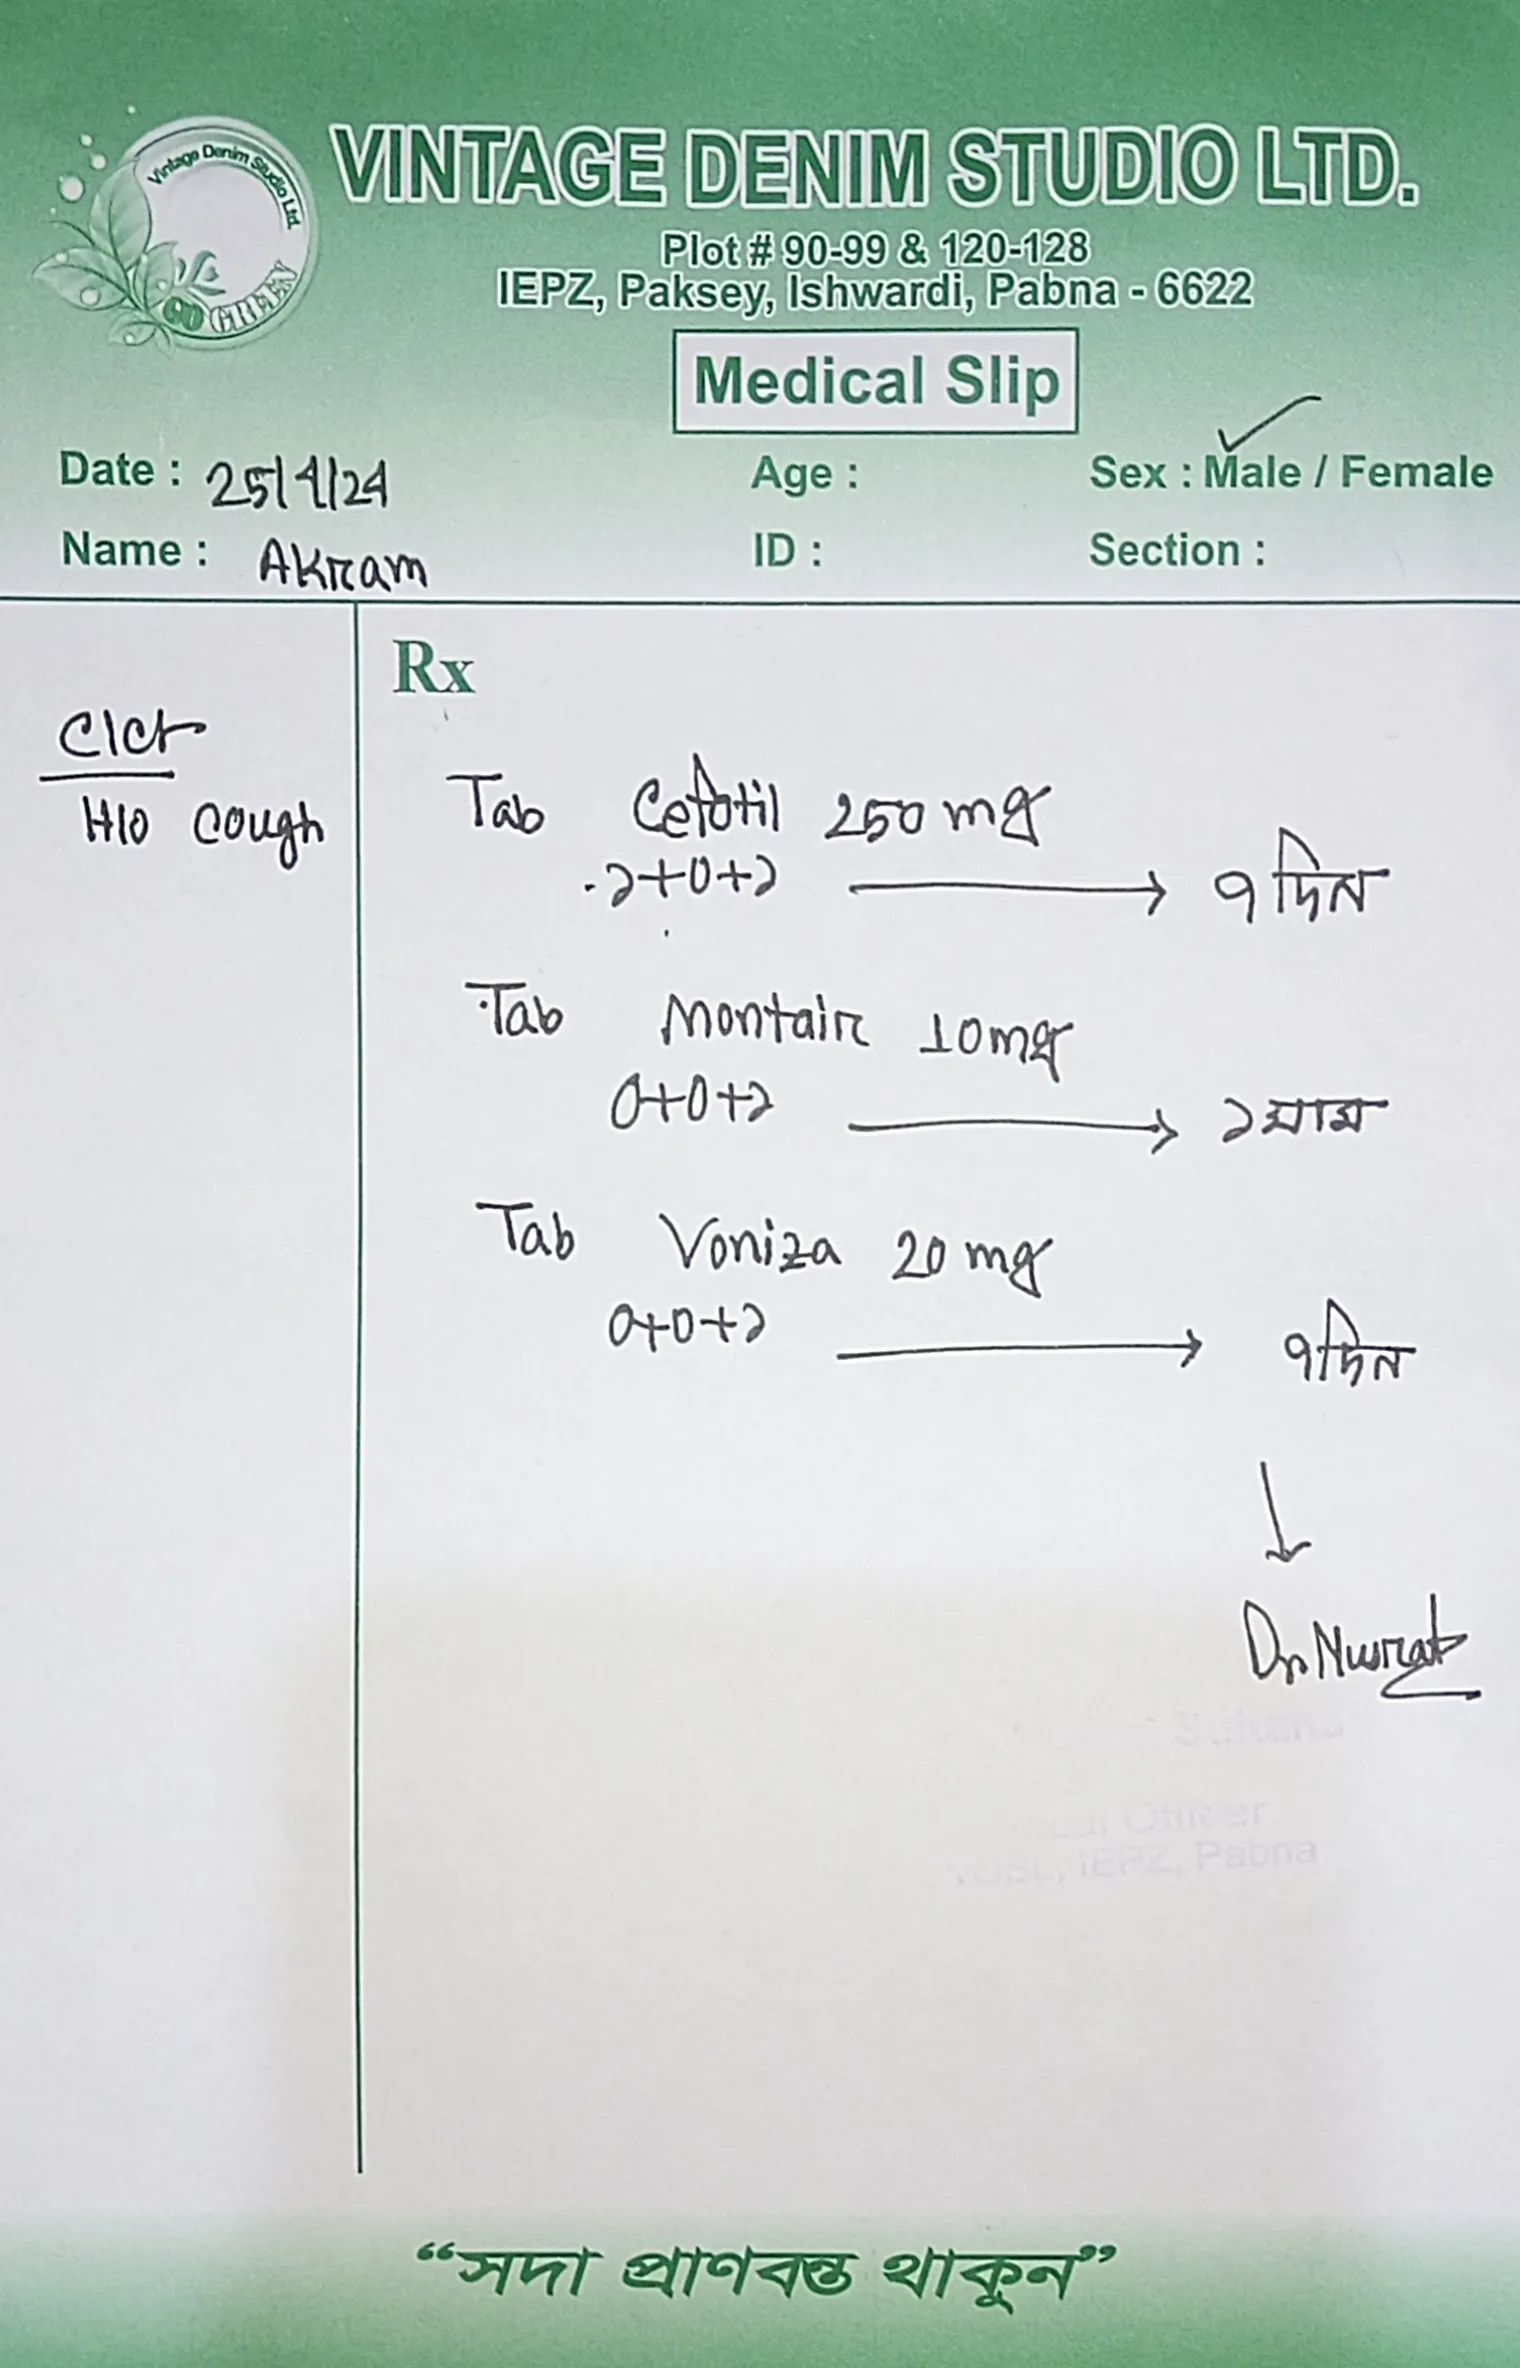 Vintage Denim Studio Ltd.
GO GREEN
VINTAGE DENIM STUDIO LTD.
Plot # 90-99 & 120-128
IEPZ, Paksey, Ishwardi, Pabna - 6622
Medical Slip
Date : 25/4/24 Age : Sex : Male / Female
Name : Akram ID : Section :
Rx
C/C
H/O cough
Tab Cefotil 250 mg
১+0+১ → ৭ দিন
Tab Montair 10mg
0+0+১ → ১ মাস
Tab Voniza 20 mg
0+0+১ → ৭ দিন
Dr. Nusrat
Officer
IEPZ, Pabna
“সদা প্রাণবন্ত থাকুন”